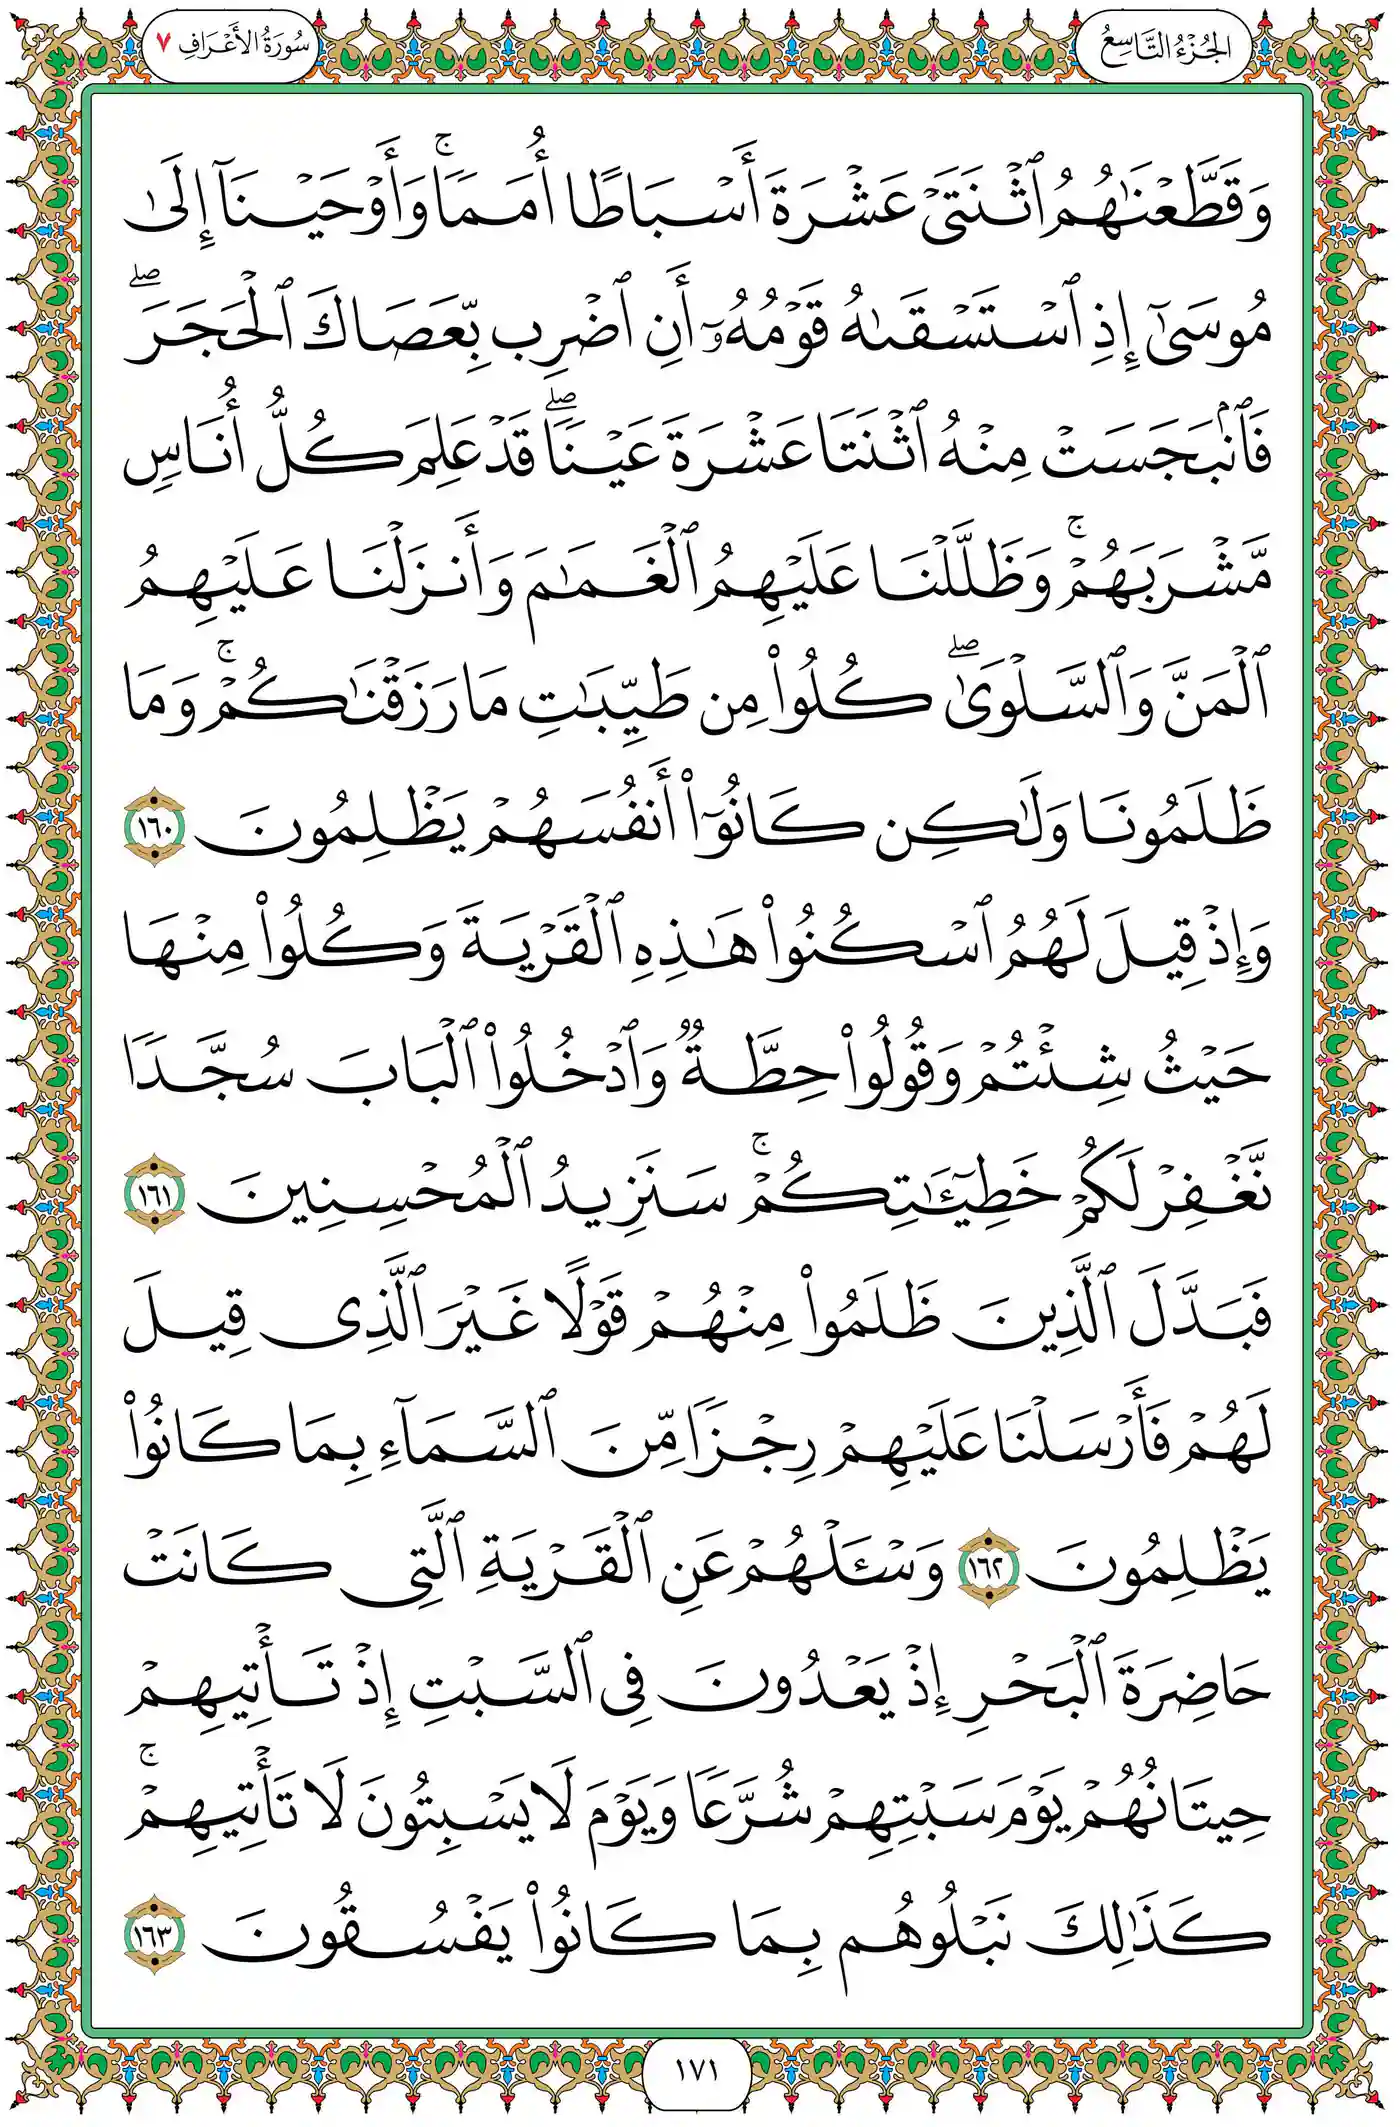 الجُزْءُ التَّاسِعُ
سُورَةُ الأَعْرَافِ ٧
وَقَطَّعْنَٰهُمُ ٱثْنَتَىْ عَشْرَةَ أَسْبَاطًا أُمَمًا ۚ وَأَوْحَيْنَآ إِلَىٰ
مُوسَىٰٓ إِذِ ٱسْتَسْقَىٰهُ قَوْمُهُۥٓ أَنِ ٱضْرِب بِّعَصَاكَ ٱلْحَجَرَ ۖ
فَٱنۢبَجَسَتْ مِنْهُ ٱثْنَتَا عَشْرَةَ عَيْنًا ۖ قَدْ عَلِمَ كُلُّ أُنَاسٍ
مَّشْرَبَهُمْ ۚ وَظَلَّلْنَا عَلَيْهِمُ ٱلْغَمَٰمَ وَأَنزَلْنَا عَلَيْهِمُ
ٱلْمَنَّ وَٱلسَّلْوَىٰ ۖ كُلُوا۟ مِن طَيِّبَٰتِ مَا رَزَقْنَٰكُمْ ۚ وَمَا
ظَلَمُونَا وَلَٰكِن كَانُوٓا۟ أَنفُسَهُمْ يَظْلِمُونَ ١٦٠
وَإِذْ قِيلَ لَهُمُ ٱسْكُنُوا۟ هَٰذِهِ ٱلْقَرْيَةَ وَكُلُوا۟ مِنْهَا
حَيْثُ شِئْتُمْ وَقُولُوا۟ حِطَّةٌ وَٱدْخُلُوا۟ ٱلْبَابَ سُجَّدًا
نَّغْفِرْ لَكُمْ خَطِيٓـَٰٔتِكُمْ ۚ سَنَزِيدُ ٱلْمُحْسِنِينَ ١٦١
فَبَدَّلَ ٱلَّذِينَ ظَلَمُوا۟ مِنْهُمْ قَوْلًا غَيْرَ ٱلَّذِى قِيلَ
لَهُمْ فَأَرْسَلْنَا عَلَيْهِمْ رِجْزًا مِّنَ ٱلسَّمَآءِ بِمَا كَانُوا۟
يَظْلِمُونَ ١٦٢ وَسْـَٔلْهُمْ عَنِ ٱلْقَرْيَةِ ٱلَّتِى كَانَتْ
حَاضِرَةَ ٱلْبَحْرِ إِذْ يَعْدُونَ فِى ٱلسَّبْتِ إِذْ تَأْتِيهِمْ
حِيتَانُهُمْ يَوْمَ سَبْتِهِمْ شُرَّعًا وَيَوْمَ لَا يَسْبِتُونَ لَا تَأْتِيهِمْ ۚ
كَذَٰلِكَ نَبْلُوهُم بِمَا كَانُوا۟ يَفْسُقُونَ ١٦٣
١٧١